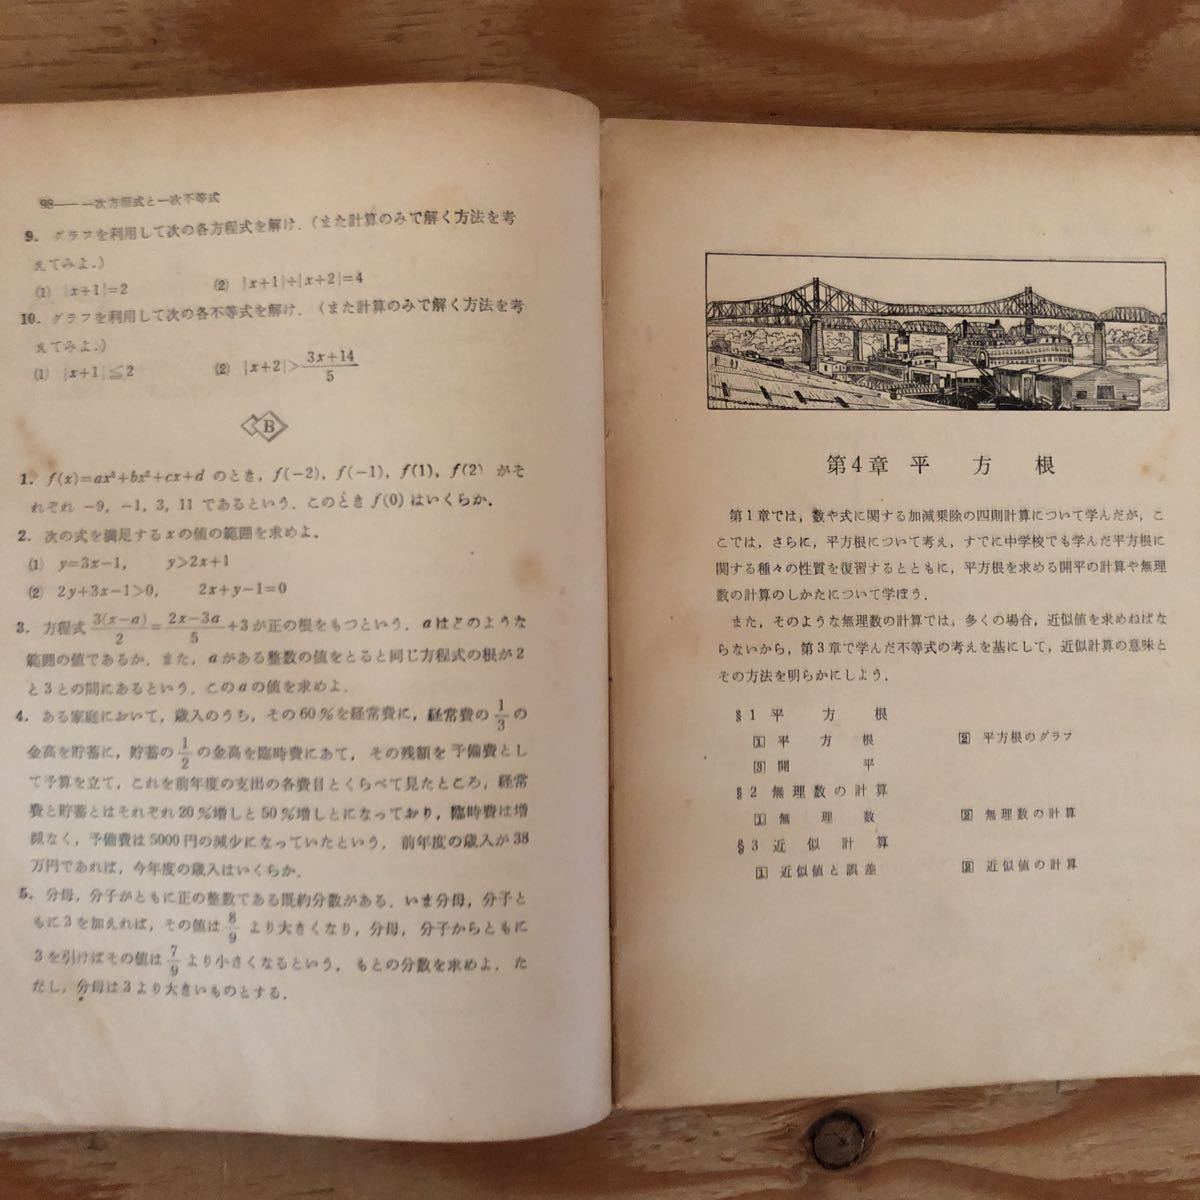 98――一次方程式と一次不等式
9. グラフを利用して次の各方程式を解け.(また計算のみで解く方法を考
えてみよ.)
(1) |x+1|=2 (2) |x+1|+|x+2|=4
10. グラフを利用して次の各不等式を解け.(また計算のみで解く方法を考
えてみよ.)
(1) |x+1|≦2 (2) |x+2|>(3x+14)/5
B
1. f(x)=ax³+bx²+cx+d のとき, f(−2), f(−1), f(1), f(2) がそ
れぞれ −9, −1, 3, 11 であるという. このとき f(0) はいくらか.
2. 次の式を満足するxの値の範囲を求めよ.
(1) y=3x−1, y>2x+1
(2) 2y+3x−1>0, 2x+y−1=0
3. 方程式 3(x−a)/2=(2x−3a)/5+3 が正の根をもつという. aはどのような
範囲の値であるか. また, aがある整数の値をとると同じ方程式の根が2
と3との間にあるという. このaの値を求めよ.
4. ある家庭において, 歳入のうち, その60%を経常費に, 経常費の1/3の
金高を貯蓄に, 貯蓄の1/2の金高を臨時費にあて, その残額を予備費とし
て予算を立て, これを前年度の支出の各費目とくらべて見たところ, 経常
費と貯蓄とはそれぞれ20%増しと50%増しとになっており, 臨時費は増
減なく, 予備費は5000円の減少になっていたという. 前年度の歳入が38
万円であれば, 今年度の歳入はいくらか.
5. 分母, 分子がともに正の整数である既約分数がある. いま分母, 分子と
もに3を加えれば, その値は8/9より大きくなり, 分母, 分子からともに
3を引けばその値は7/9より小さくなるという. もとの分数を求めよ. た
だし, 分母は3より大きいものとする.
第4章 平方根
第1章では, 数や式に関する加減乗除の四則計算について学んだが, こ
こでは, さらに, 平方根について考え, すでに中学校でも学んだ平方根に
関する種々の性質を復習するとともに, 平方根を求める開平の計算や無理
数の計算のしかたについて学ぼう.
また, そのような無理数の計算では, 多くの場合, 近似値を求めねばな
らないから, 第3章で学んだ不等式の考えを基にして, 近似計算の意味と
その方法を明らかにしよう.
§1 平方根
1 平方根 2 平方根のグラフ
3 開平
§2 無理数の計算
1 無理数 2 無理数の計算
§3 近似計算
1 近似値と誤差 2 近似値の計算